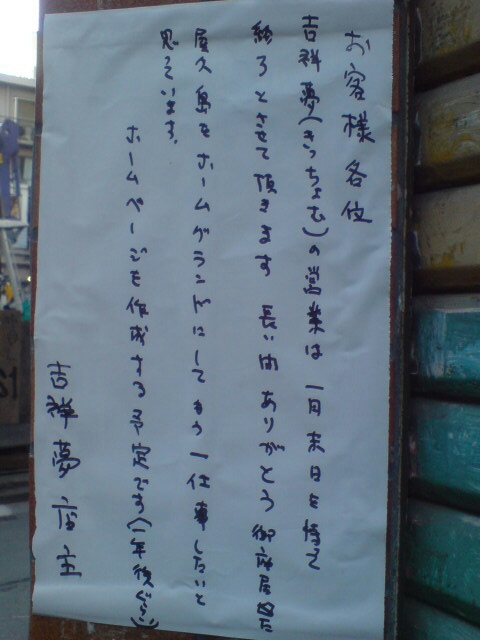 お客様各位
吉祥夢(きっちょむ)の営業は一月末日を持て
終ろとさせて頂きます 長い間 ありがとう御座居ました
屋久島をホームグランドにしてもう一仕事したいと
思ています。
ホームページも作成する予定です(一年後ぐらい)
吉祥夢店主